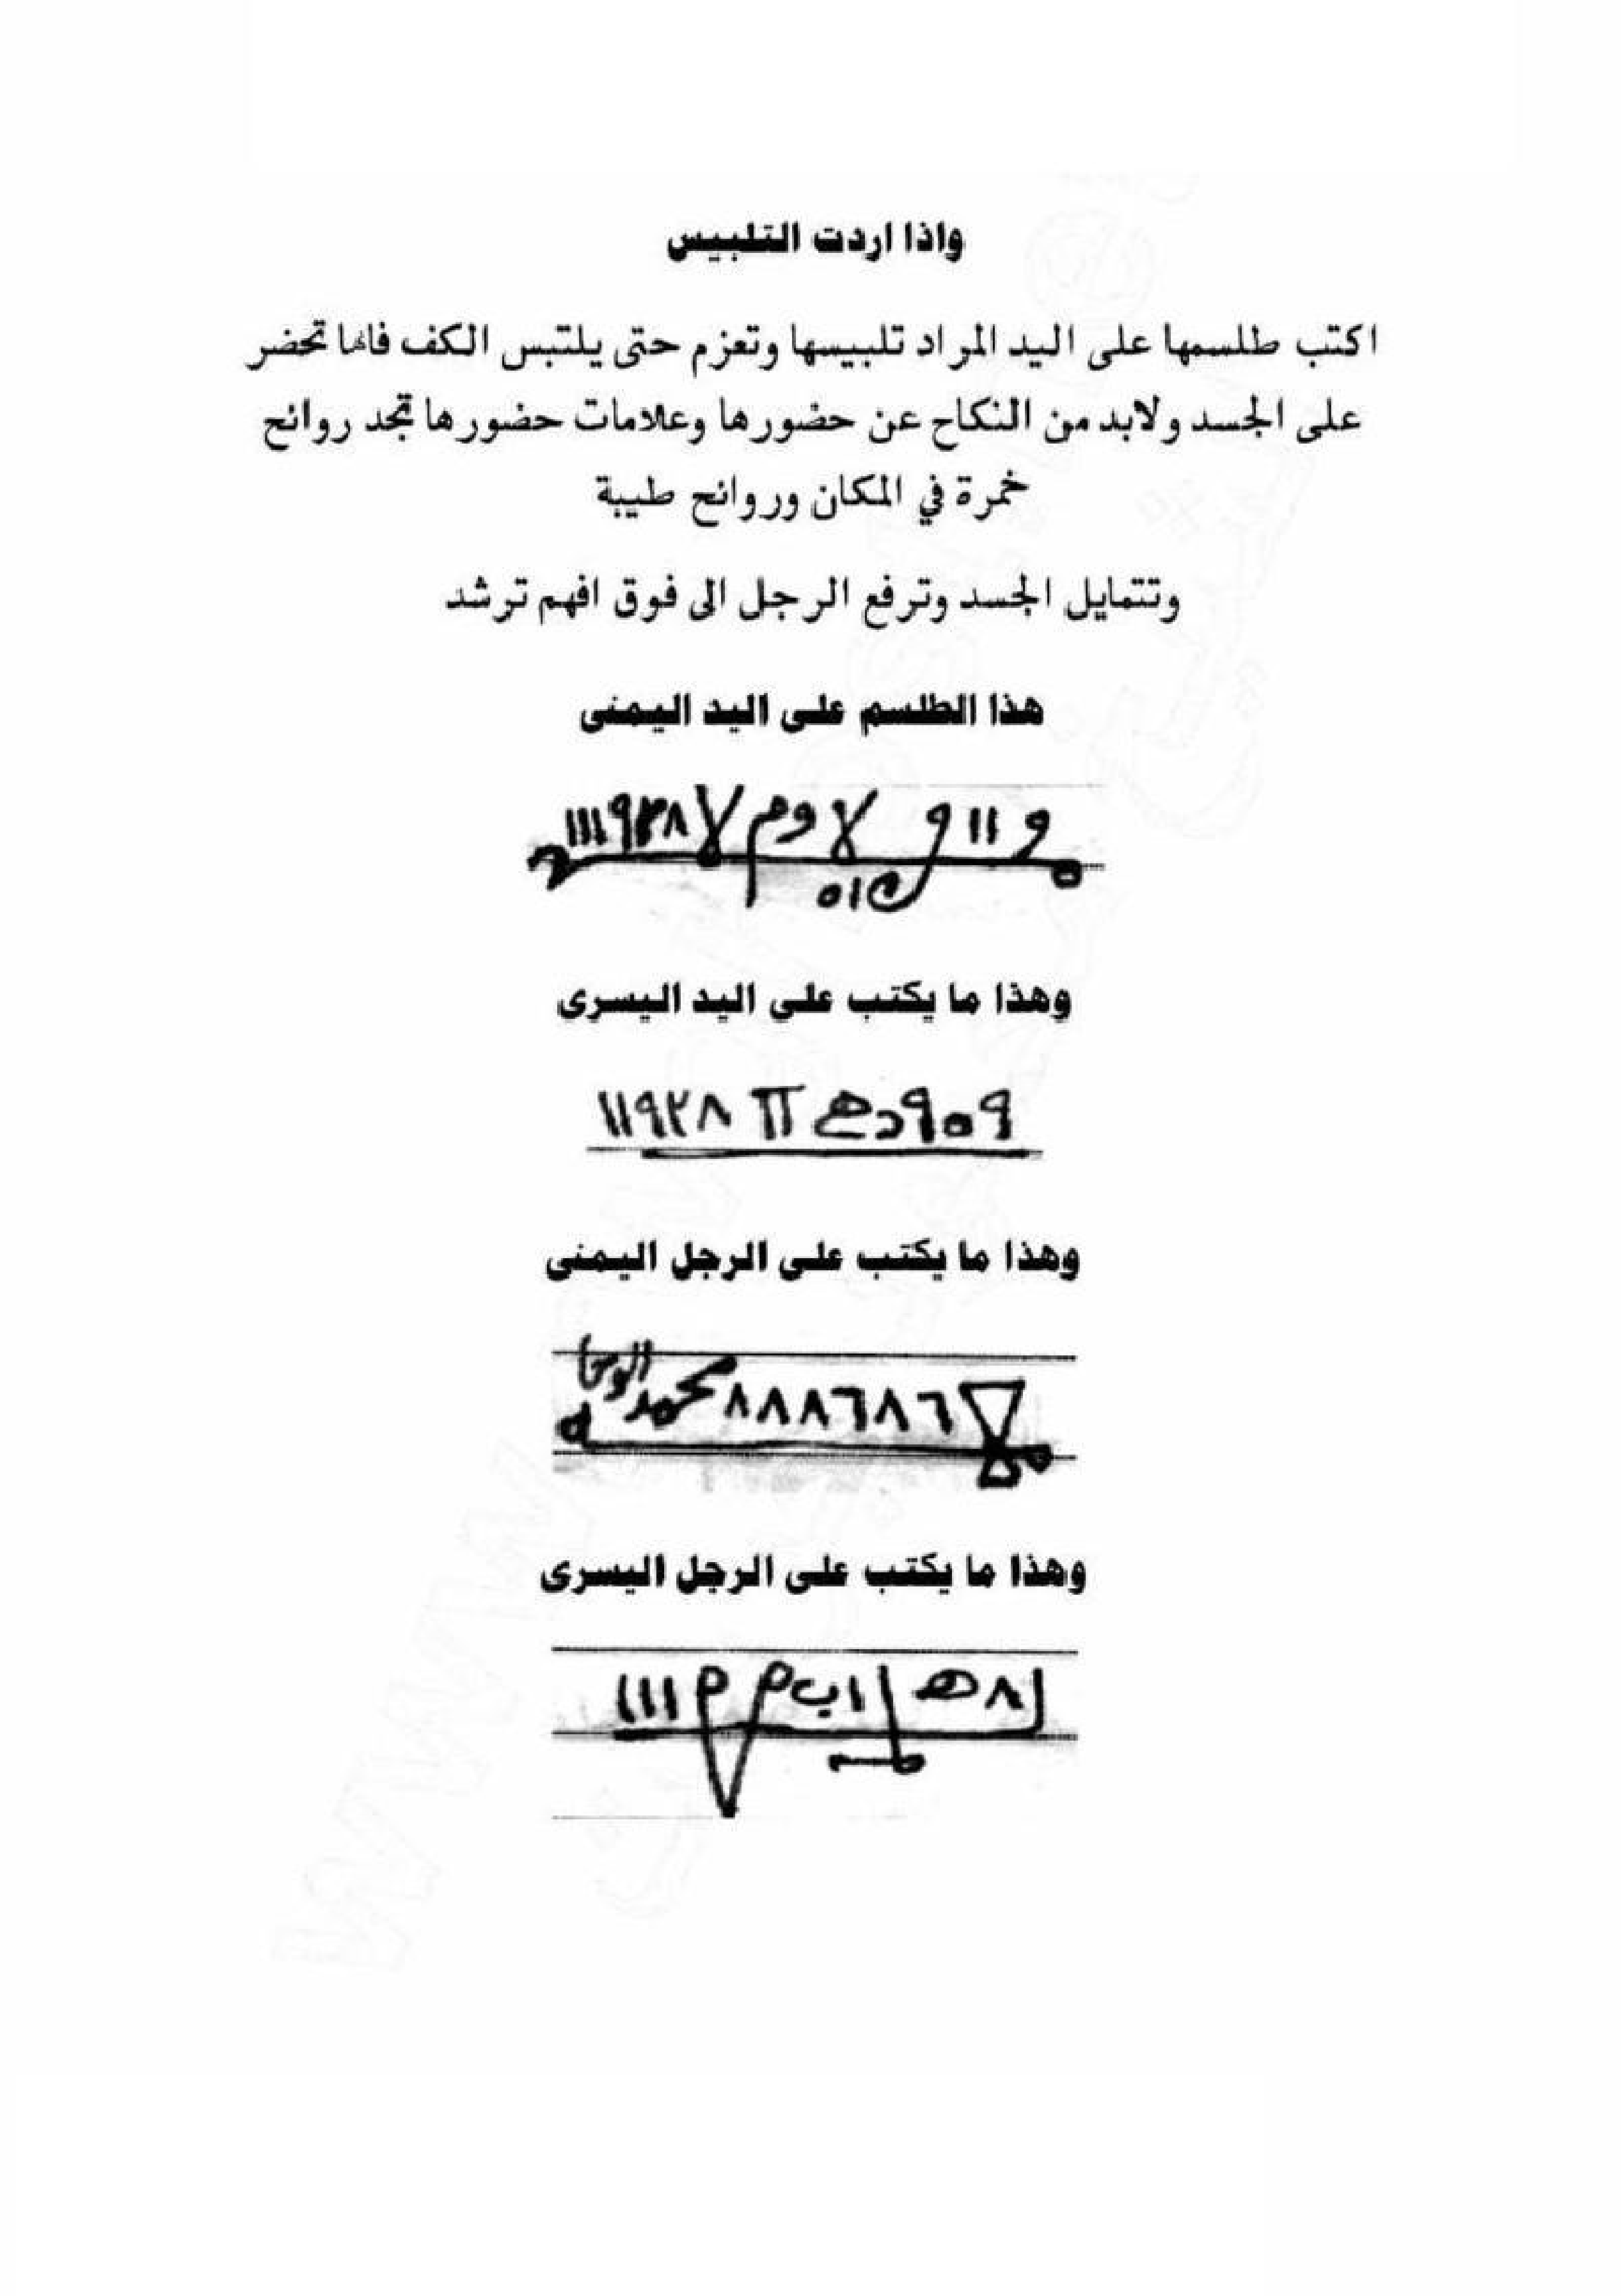 واذا اردت التلبيس
اكتب طلسمها على اليد المراد تلبيسها وتعزم حتى يلتبس الكف فانها تحضر
على الجسد ولابد من النكاح عن حضورها وعلامات حضورها تجد روائح
خمرة في المكان وروائح طيبة
وتتمايل الجسد وترفع الرجل الى فوق افهم ترشد
هذا الطلسم على اليد اليمنى
وهذا ما يكتب على اليد اليسرى
١١٩٢٨
وهذا ما يكتب على الرجل اليمنى
٨٨٨٦٨٦ محمد
وهذا ما يكتب على الرجل اليسرى